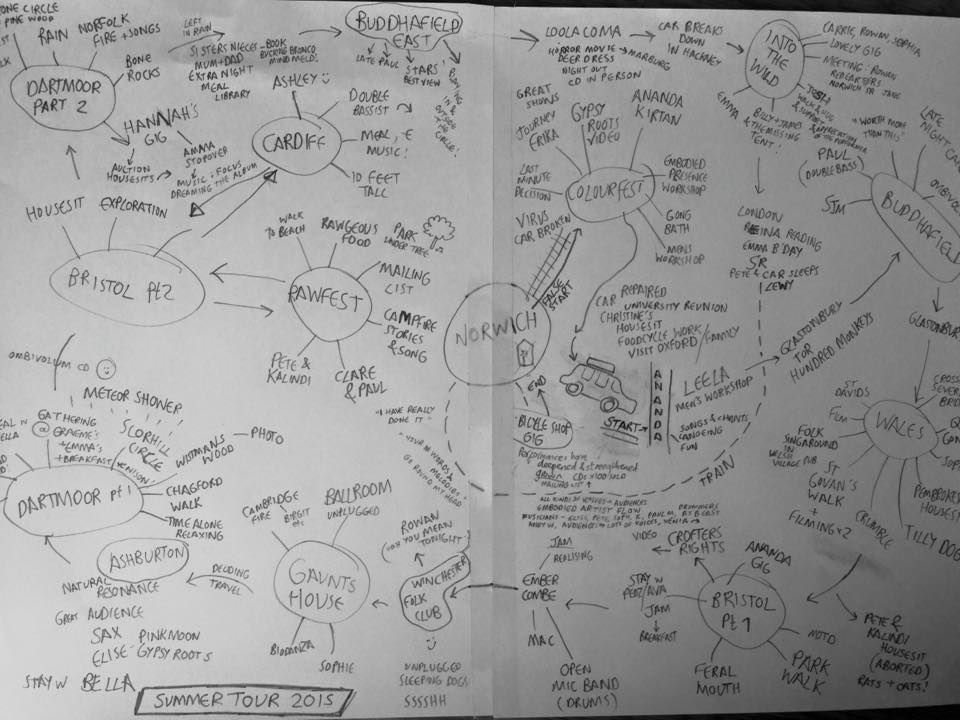 ONE CIRCLE
PINE WOOD
RAIN
NORFOLK
FIRE + SONGS
DARTMOOR
PART 2
BONE
ROCKS
LEFT
IN RAIN
SISTERS NIECES
MUM + DAD
EXTRA NIGHT
MEAL
LIBRARY
BOOK
BUCKING BRONCO
MIND MELD!
BUDDHAFIELD
EAST
LATE PAUL
STARS'
BEST VIEW
ASHLEY
DOUBLE
BASSIST
CARDIFF
MEAL, E
MUSIC!
10 FEET
TALL
HANNAH'S
GIG
AUCTION
HOUSESITS
AMMA
STOPOVER
MUSIC: FOCUS
DREAMING THE ALBUM
HOUSESIT
EXPLORATION
BRISTOL Pt2
WALK
TO BEACH
RAWGEOUS
FOOD
PARK
UNDER TREE
RAWFEST
MAILING
LIST
CAMPFIRE
STORIES
& SONG
PETE &
KALINDI
CLARE
& PAUL
OMBIVOLUM CD
METEOR SHOWER
GATHERING
@ GRAEME'S
+ EMMA'S
+ BREAKFAST
VENISON
SCORHILL
CIRCLE
WISTMANS
WOOD
PHOTO
DARTMOOR pt 1
CHAGFORD
WALK
TIME ALONE
RELAXING
ASHBURTON
NATURAL
RESONANCE
GREAT AUDIENCE
SAX PINKMOON
ELISE - GYPSY ROOTS
STAY W BELLA
SUMMER TOUR 2015
DECIDING
TRAVEL
CAMBRIDGE
FIRE
BIRGIT
BALLROOM
UNPLUGGED
GAUNTS
HOUSE
BIODANZA
SOPHIE
"I HAVE REALLY
DONE IT"
"YOUR WORDS &
MELODIES
GO ROUND MY HEAD"
ROWAN
"DID YOU MEAN
TONIGHT"
WINCHESTER
FOLK
CLUB
UNPLUGGED
SLEEPING DOGS
SSSSHH
LOOLA COMA
HORROR MOVIE
DEER DRESS
NIGHT OUT
CD IN PERSON
MARBURG
CAR BREAKS
DOWN
IN HACKNEY
INTO
THE
WILD
CARRIE, ROWAN, SOPHIA
LOVELY GIG
MEETING: ROWAN
NORWICH IN JUNE
EMMA
BILLY + JAMES
& THE MISSING
TENT!
"WORTH MORE
THAN THIS"
PAUL
(DOUBLE BASS)
SIM
LATE
NIGHT
BUDDHAFIELD
GREAT
SHOWS
JOURNEY
ERIKA
GYPSY
ROOTS
VIDEO
ANANDA
KIRTAN
LAST
MINUTE
DECISION
COLOURFEST
EMBODIED
PRESENCE
WORKSHOP
GONG
BATH
MENS
WORKSHOP
VIRUS
CAR BROKEN
FALSE
START
NORWICH
END
BICYCLE SHOP
GIG
Performances have
deepened & strengthened
CDs x100 sold
MAILING LIST
CAR REPAIRED
UNIVERSITY REUNION
CHRISTINE'S
HOUSESIT
FOODCYCLE WORK / FAMILY
VISIT OXFORD
START
ANANDA
LONDON
READING
EMMA B'DAY
SR
PETE & CAR SLEEPS
LEWY
LEELA
MEN'S WORKSHOP
SONGS & CHANTS
CANOEING
FUN
GLASTONBURY
TOR
HUNDRED MONKEYS
TRAIN
GLASTONBURY
ST
DAVIDS
FILM
WALES
FOLK
SINGAROUND
IN
WELSH
VILLAGE PUB
ST
GOVAN'S
WALK
+
FILMING x2
CRUMBLE
TILLY DOG
PEMBROKE
HOUSESIT
ALL KINDS OF VENUES + AUDIENCES
EMBODIED ARTIST FLOW
JAM
REALISING
EMBER
COMBE
MAC
OPEN
MIC BAND
(DRUMS)
VIDEO
CROFTERS
RIGHTS
ANANDA
GIG
STAY W
PEDZ/AVA
JAM
BREAKFAST
BRISTOL
Pt 1
MOTO
PARK
WALK
FERAL
MOUTH
PETE &
KALINDI
HOUSESIT
(ABORTED)
RATS + CATS!